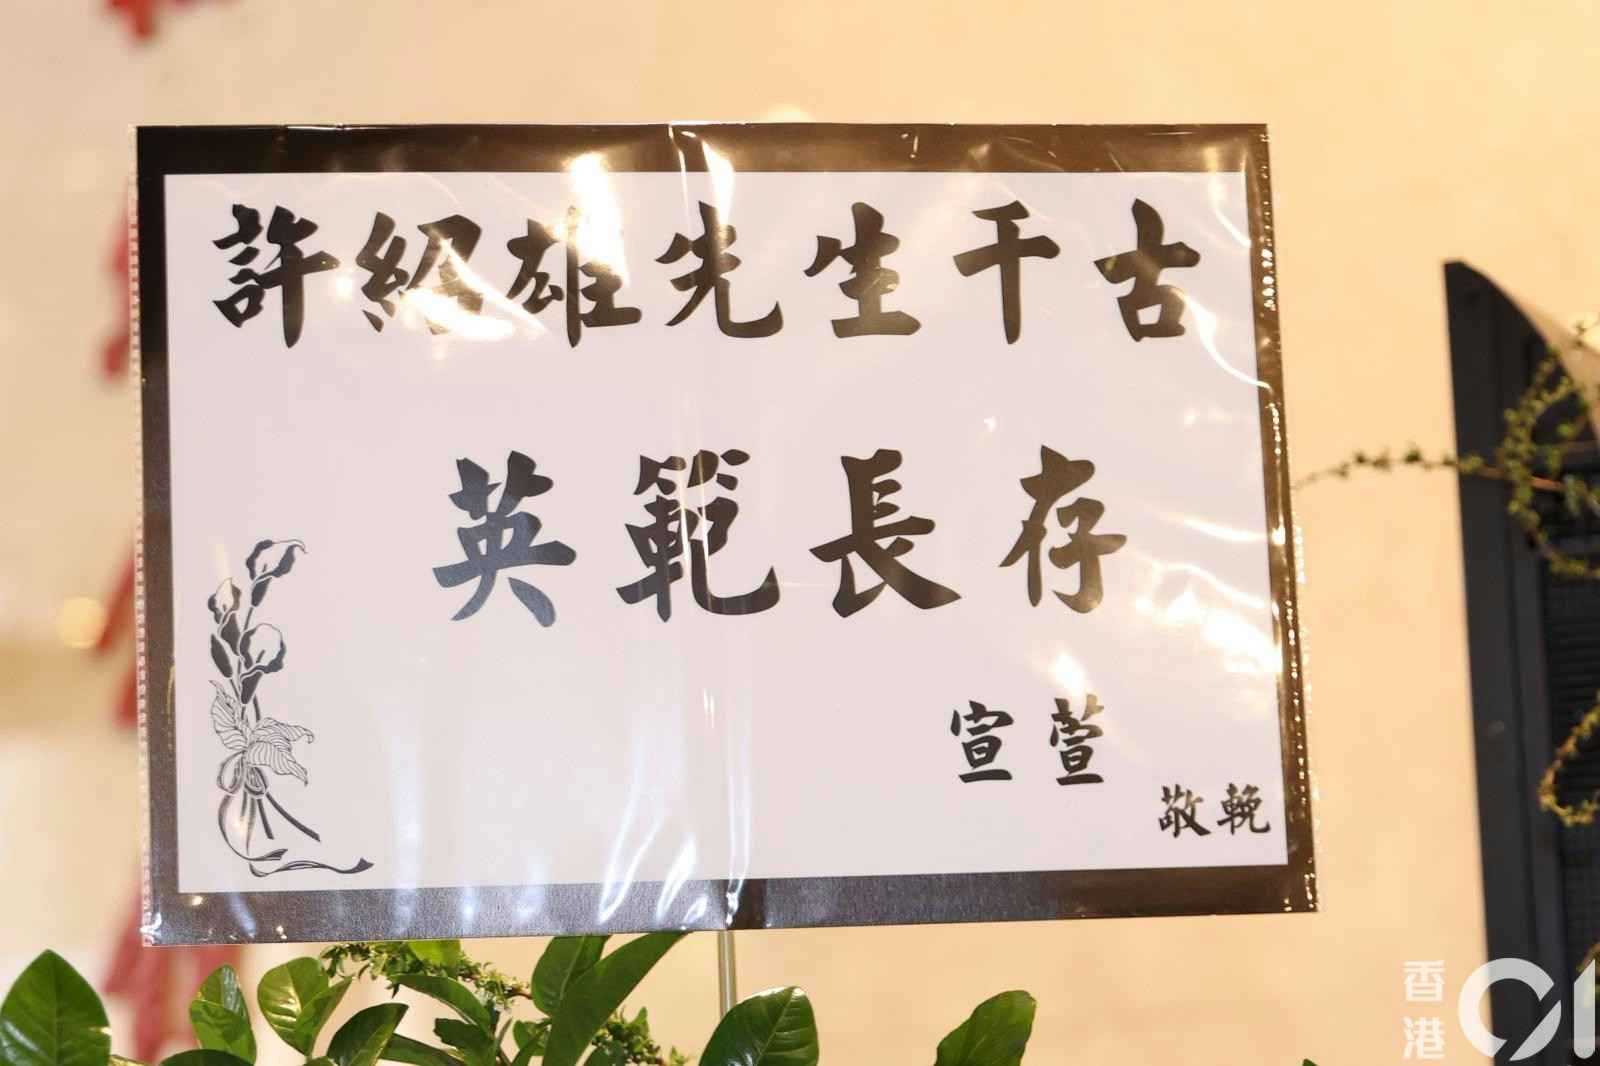 許紹雄先生千古
英範長存
宣萱
敬輓
香港01